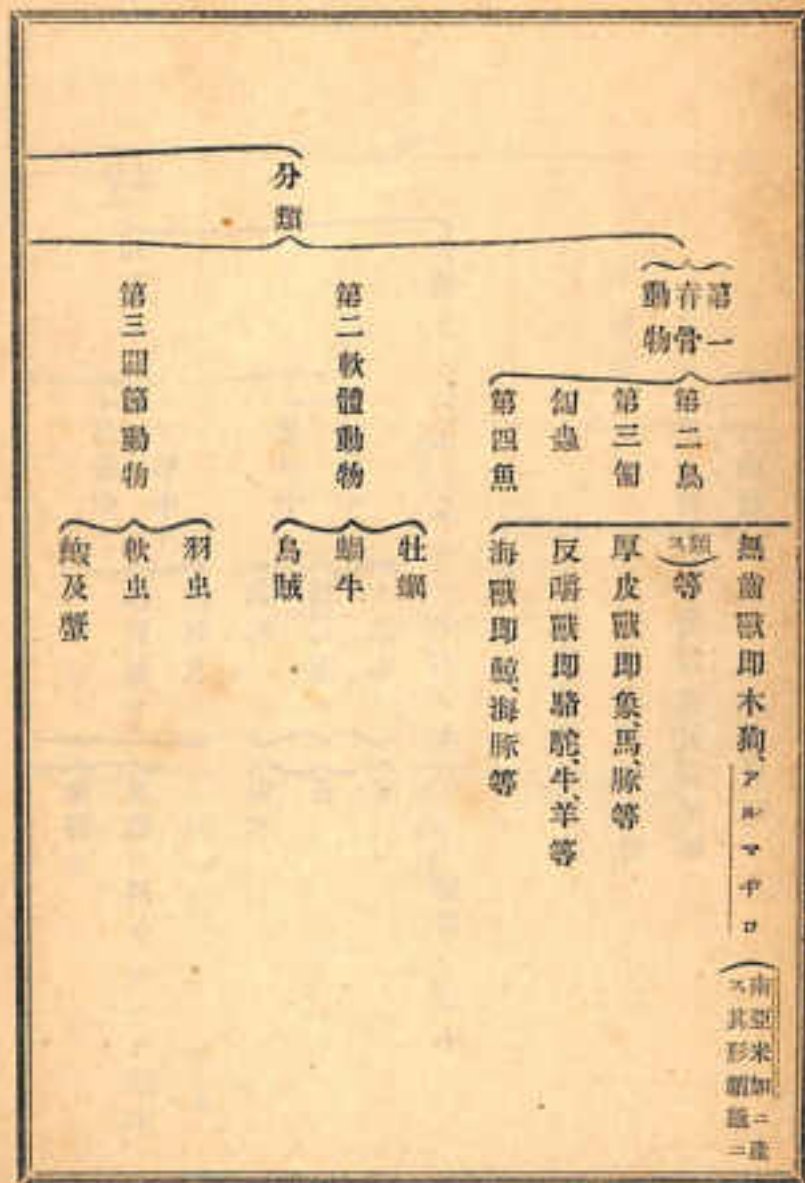 分類
第一
有骨
動物
第二鳥
第三匐
匐蟲
第四魚
無齒獸即木狗、アルマヂロ(南亞米加ニ産
ス其形蝟鼠ニ
類ス)等
厚皮獸即象、馬、豚等
反嚼獸即駱駝、牛、羊等
海獸即鯨、海豚等
第二軟體動物
牡蠣
蝸牛
烏賊
第三關節動物
羽虫
軟虫
蝦及蟹